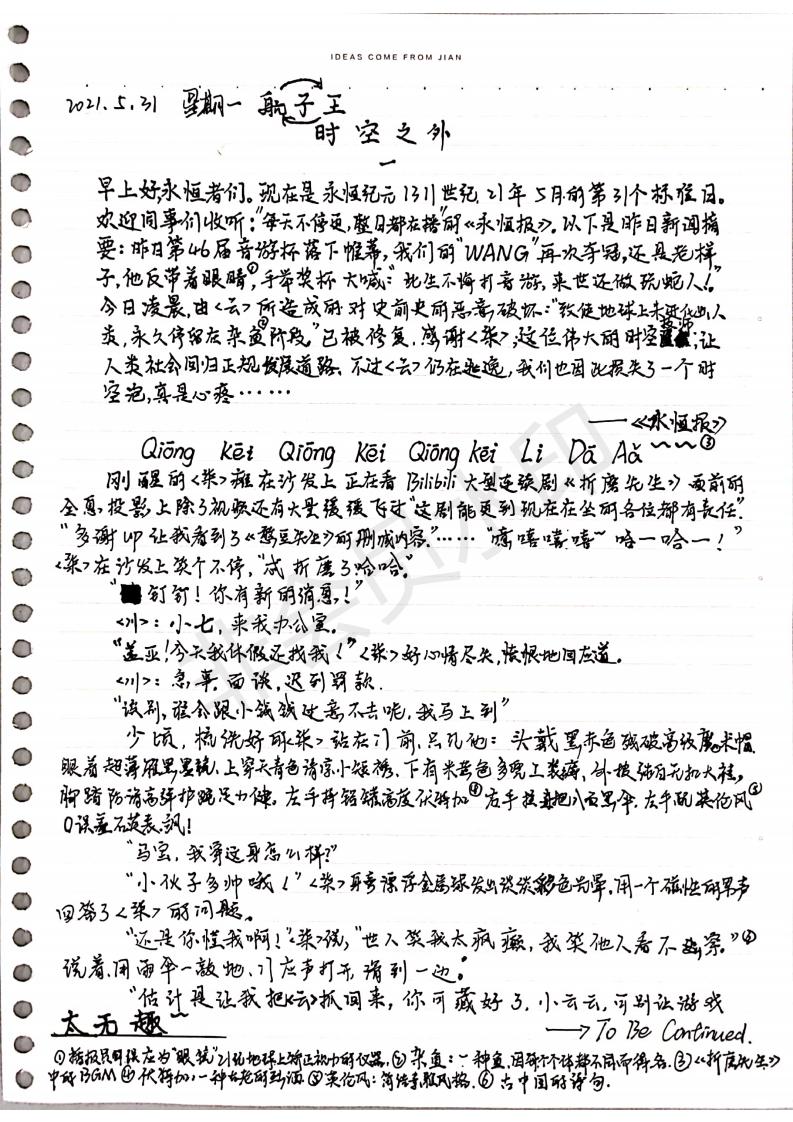 IDEAS COME FROM JIAN
2021.5.31 星期一 航子王
时空之外
一
早上好,永恒者们。现在是永恒纪元1311世纪21年5月的第31个标准日。
欢迎同事们收听:“每天不停更,整日都在播”的《永恒报》。以下是昨日新闻摘
要:昨日第46届音游杯落下帷幕,我们的“WANG”再次夺冠,还是老样
子,他反带着眼睛①,手举奖杯大喊:“此生不悔打音游,来世还做玩蛇人!”
今日凌晨,由<云>所造成的对史前史的恶意破坏:“致使地球上未进化出人
类,永久停留在杂鱼②阶段”已被修复,感谢<柒>,这位伟大的时空,让
人类社会回归正规发展道路。不过<云>仍在逃逸,我们也因此损失了一个时
空泡,真是心疼……
——《永恒报》
Qiōng Kēi Qiōng Kēi Qiōng kēi Li Dā Aǎ ~~③
刚醒的<柒>瘫在沙发上正在看Bilibili大型连续剧《折磨先生》面前的
全息投影上除了视频还有大量缓缓飞过“这剧能更到现在在坐的各位都有责任”
“多谢up让我看到了《憨豆先生》的删减内容。”……“嘻嘻嘻嘻~哈一哈一!”
<柒>在沙发上笑个不停,“成折磨了哈哈。”
“钉钉!你有新的消息!”
<川>:小七,来我办公室。
“盖亚!今天我休假还找我!”<柒>好心情尽失,愤恨地回应道。
<川>:急事,面谈,迟到罚款.
“该剐,谁会跟小钱钱过意不去呢,我马上到”
少顷,梳洗好的<柒>站在门前,只见他:头戴黑赤色残破高级魔术帽
眼着超薄雁黑墨镜,上穿天青色清凉小短褂,下有米黄色多兜工装裤,外披纯白无扣大褂,
脚踏防滑高弹护踝足力健。左手持铝罐高度伏特加④右手提直把八面黑伞,左手配英伦风⑤
0误差石英表,飒!
“马宝,我穿这身怎么样?”
“小伙子多帅哦!”<柒>耳旁漂浮金属球发出淡淡彩色光晕,用一个磁性的男声
回答了<柒>的问题。
“还是你懂我啊!”<柒>说,“世人笑我太疯癫,我笑他人看不穿。”⑥
说着,用雨伞一敲地,门应声打开,滑到一边。
“估计是让我把<云>抓回来,你可藏好了,小云云,可别让游戏
太无趣~
→To Be Continued.
①播报员口误应为“眼镜”21纪地球上矫正视力的仪器,②杂鱼:一种鱼,因每个个体都不同而得名.③《折磨先生》
中的BGM④伏特加,一种古老的烈酒⑤英伦风:简洁自取风格.⑥古中国的诗句.